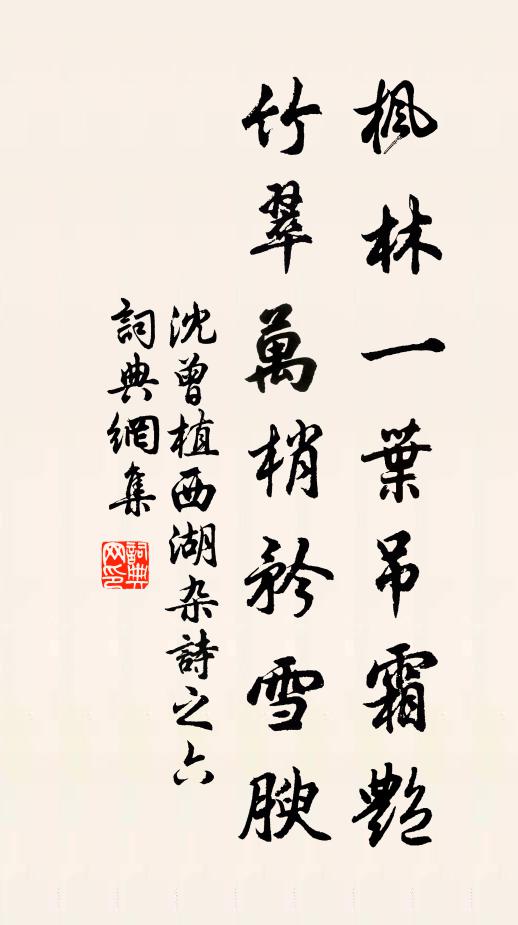 枫林一葉吊霜艷
竹翠萬梢矜雪腴
沈曾植西湖杂詩之六
詞典網集
詞典网印